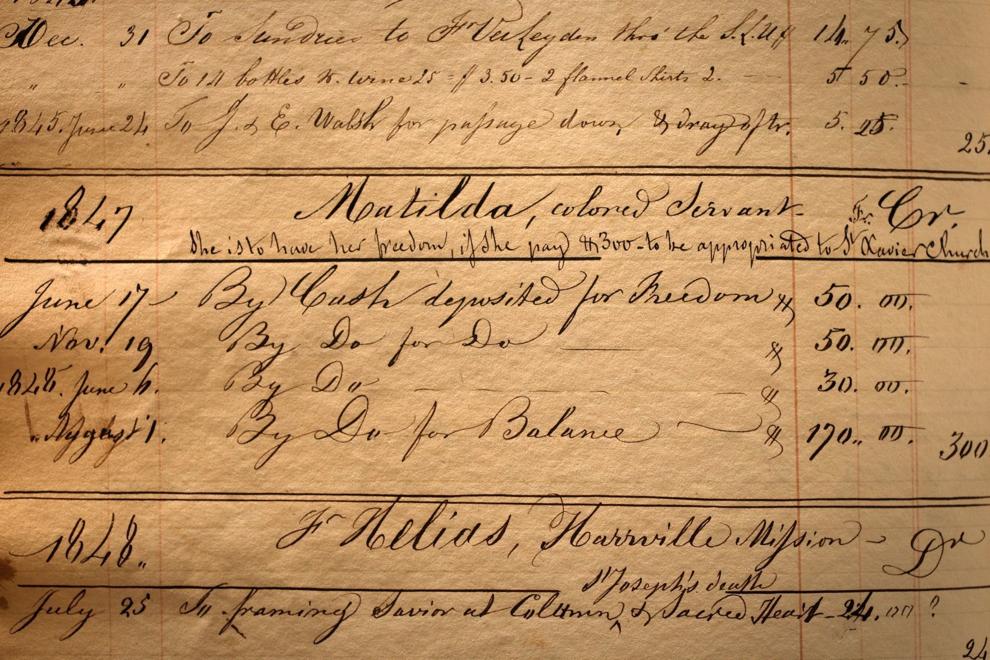 Dec. 31 To Sundries to Fr Verheyden thro' the S.L.U. 14. 75.
" " To 14 bottles W. wine 25 = $ 3.50 - 2 flannel shirts 2. 5 50.
1845. June 24 To J. & E. Walsh for passage down, & drayage &tc. 5. 25. 25.
1847 Matilda, colored Servant Cr.
She is to have her freedom, if she pay $300 - to be appropriated to St Xavier Church
June 17 By Cash deposited for Freedom $ 50. 00.
Nov. 19 By Do for Do $ 50. 00.
1848. June 6. By Do $ 30. 00.
" August 1. By Do for Balance $ 170. 00. 300
1848. Fr Helias, Harrville Mission - Dr
St Joseph's death
July 25 To framing Savior at Column, ^ & Sacred Heart - 24. 00 ?
24